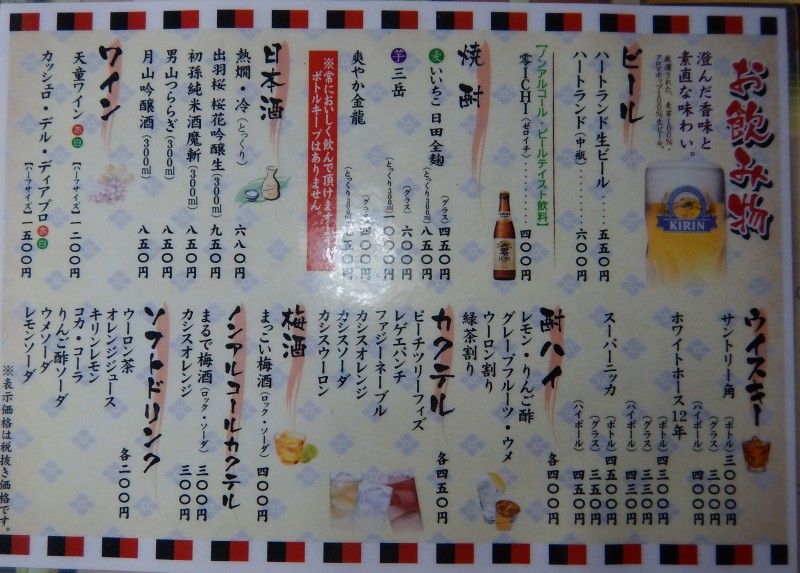 お飲み物
澄んだ香味と
素直な味わい。
厳選された、麦芽100%・
アロマホップ100%生ビール。
KIRIN
ビール
ハートランド生ビール………五五〇円
ハートランド(中瓶)………六〇〇円
【ノンアルコール・ビールテイスト飲料】
零ICHI(ゼロイチ)………四〇〇円
焼酎
麦 いいちこ 日田全麹
(グラス) 四五〇円
(とっくり300ml) 八五〇円
芋 三岳
(グラス) 六〇〇円
爽やか金龍
(グラス)
(とっくり300ml)
※常においしく飲んで頂けます
ボトルキープはありません。
日本酒
熱燗・冷(とっくり) 六八〇円
出羽桜 桜花吟醸生(300ml) 九五〇円
初孫純米酒魔斬(300ml) 八五〇円
男山つららぎ(300ml) 八五〇円
月山吟醸酒(300ml) 八五〇円
ワイン
天童ワイン 赤 白
【ハーフサイズ】 一二〇〇円
カッシェロ・デル・ディアブロ 赤 白
【ハーフサイズ】 一五〇〇円
ウイスキー
サントリー角
(ボトル) 三〇〇〇円
(グラス) 三〇〇円
(ハイボール) 四〇〇円
ホワイトホース12年
(ボトル) 四三〇〇円
(グラス) 三五〇円
(ハイボール) 四五〇円
スーパーニッカ
(ボトル) 四五〇〇円
(グラス) 三五〇円
(ハイボール) 四五〇円
酎ハイ
レモン・りんご酢
グレープフルーツ・ウメ
ウーロン割り
緑茶割り
各四〇〇円
カクテル
ピーチツリーフィズ
レゲエパンチ
ファジーネーブル
カシスオレンジ
カシスソーダ
カシスウーロン
各四五〇円
梅酒
まっこい梅酒(ロック・ソーダ) 四〇〇円
ノンアルコールカクテル
まるで梅酒(ロック・ソーダ) 三〇〇円
カシスオレンジ 三〇〇円
ソフトドリンク
ウーロン茶
オレンジジュース
キリンレモン
コカ・コーラ
りんご酢ソーダ
ウメソーダ
レモンソーダ
各二〇〇円
※表示価格は税抜き価格です。